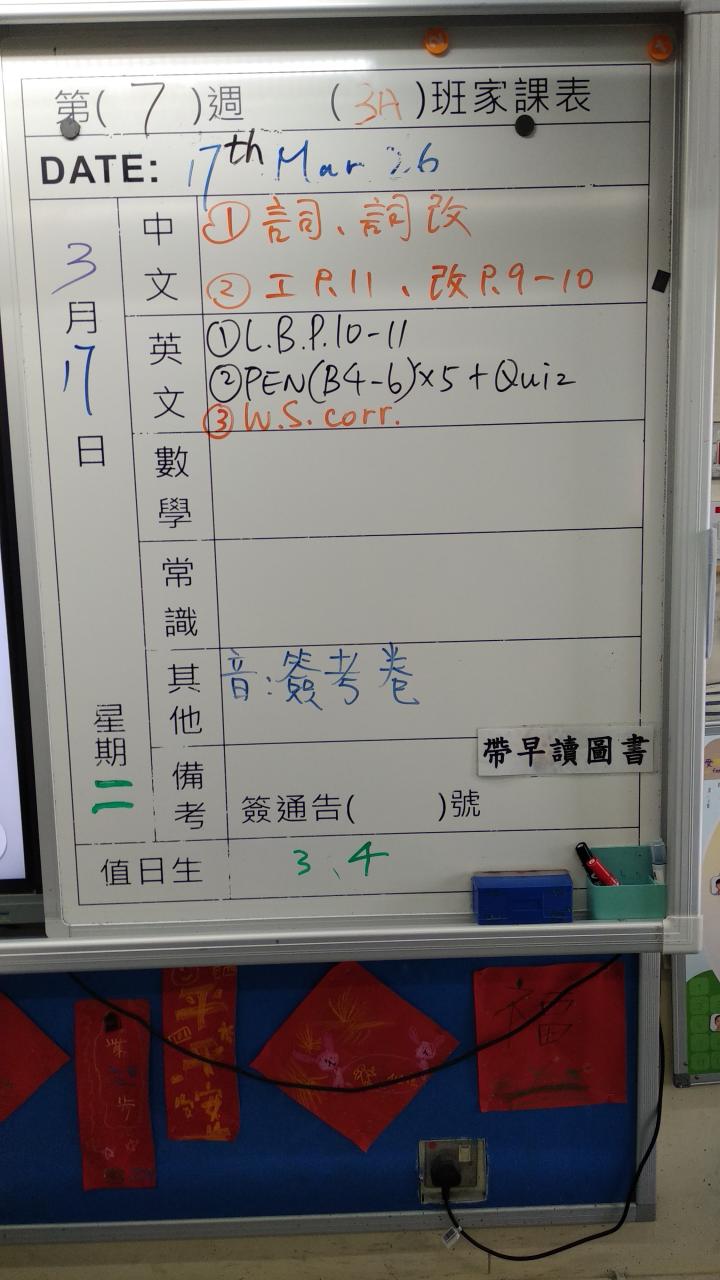 第( 7 )週 ( 3A )班家課表
DATE: 17th Mar 26
3月17日
星期二
中文
① 詞、詞改
② 工 P.11、改 P.9-10
英文
① L.B.P.10-11
② PEN(B4-6)×5 + Quiz
③ W.S. corr.
數學
常識
其他
音:簽考卷
備考
帶早讀圖書
簽通告( )號
值日生
3、4
福